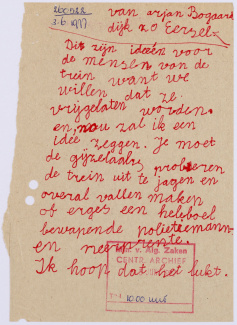 van arjan Bogaard
3.6.1977 dijk 20 Eersel
Dit zijn ideeën voor
de mensen van de
trein want we
willen dat ze
vrijgelaten worden.
en, nou zal ik een
idee zeggen. Je moet
de gijzelaars, proberen
de trein uit te jagen en
overal vallen maken
of erges een heleboel
bewapende polietemann-
en neer
Ik hoop dat het lukt.
v. Alg. Zaken
CENTR. ARCHIEF
10.00 uur